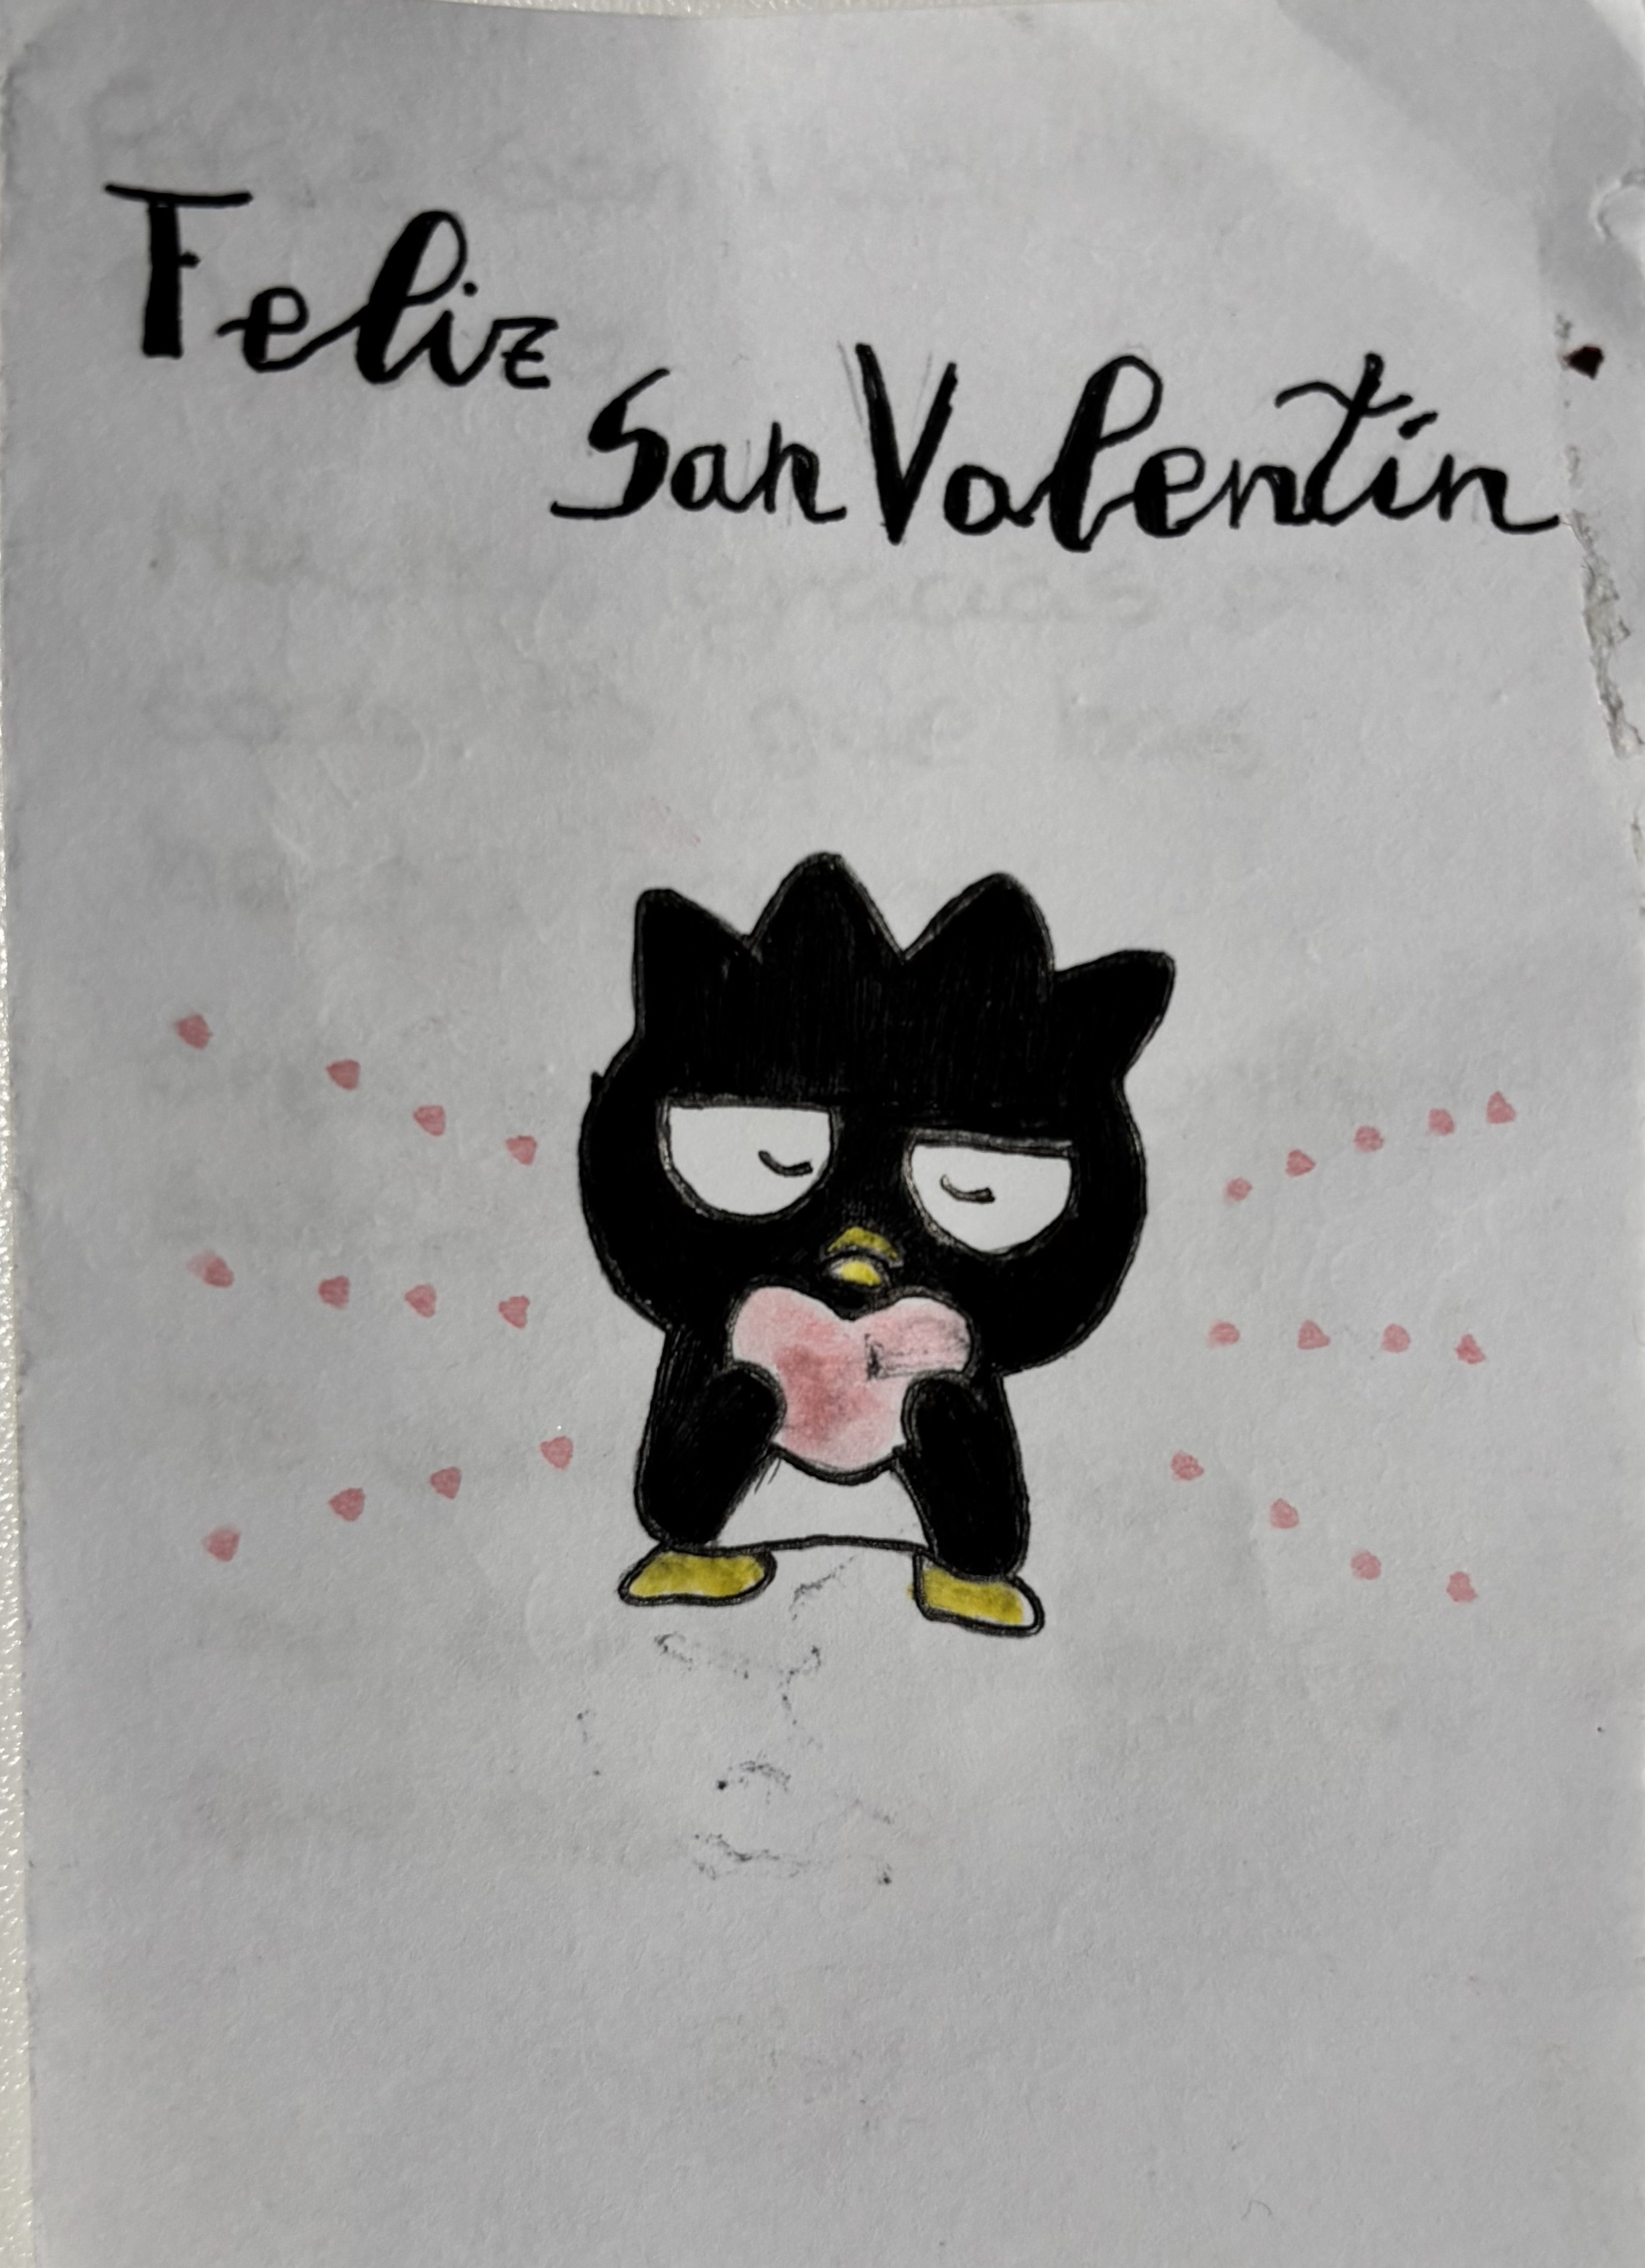 Feliz
San Valentín